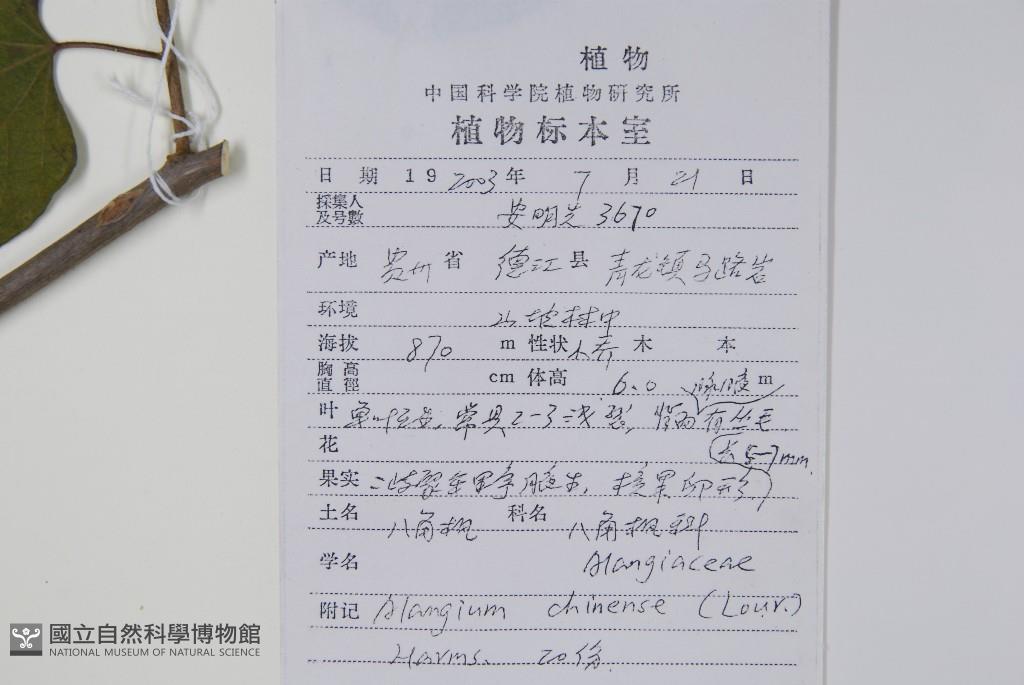 植物
中国科学院植物研究所
植物标本室
日期 19 2003年 7月 21日
採集人及号數 安明先 3670
产地 贵州省 德江县 青龙镇马路岩
环境 山坡林中
海拔 870 m 性状 小乔木 本
胸高直徑 cm 体高 6.0 m
脉腋
叶 单叶互生,常具2-3浅裂,背面有丛毛
花 长5-7mm
果实 二歧聚伞花序腋生,核果卵形
土名 八角枫 科名 八角枫科
学名 Alangiaceae
附记 Alangium chinense (Lour.)
Harms. 20份
國立自然科學博物館
NATIONAL MUSEUM OF NATURAL SCIENCE